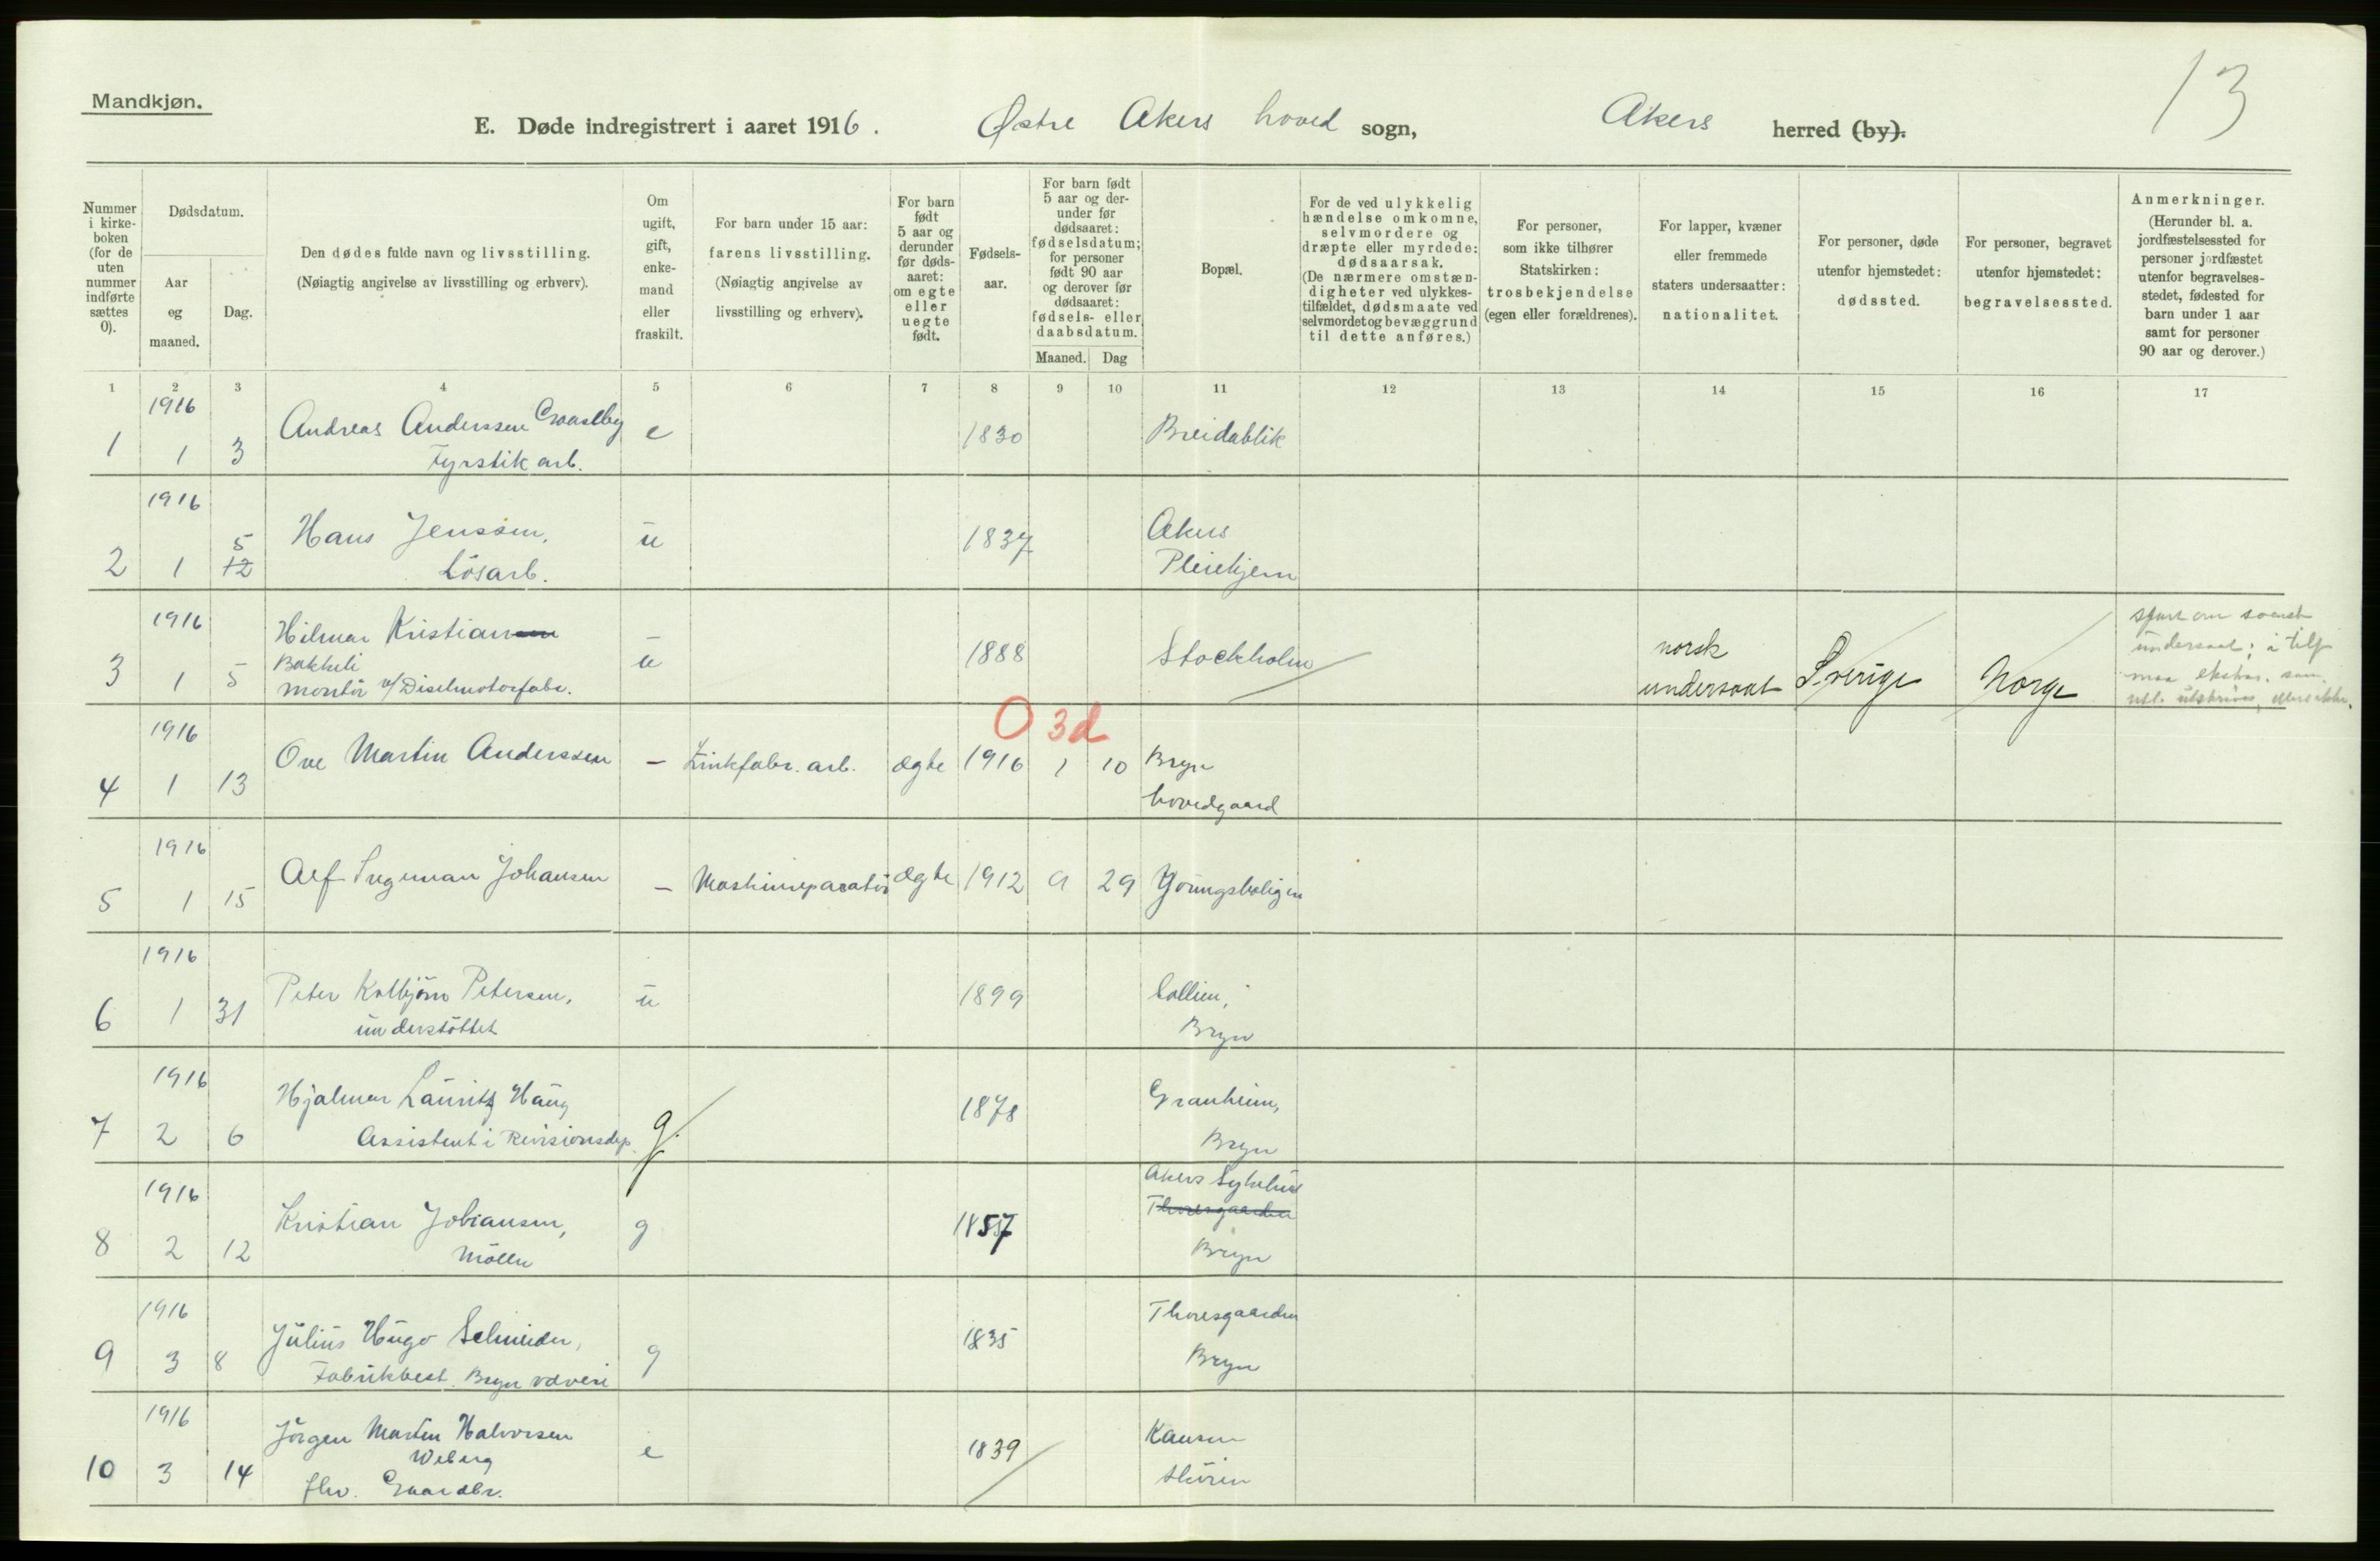 Mandkjøn.
13
E. Døde indregistrert i aaret 1916. Østre Akers hoved sogn, Akers herred (by).
Nummer i kirke-boken (for de uten nummer indførte sættes 0).
Dødsdatum.
Aar og maaned.
Dag.
Den dødes fulde navn og livsstilling.
(Nøiagtig angivelse av livsstilling og erhverv).
Om ugift, gift, enke-mand eller fraskilt.
For barn under 15 aar: farens livsstilling.
(Nøiagtig angivelse av livsstilling og erhverv).
For barn født 5 aar og derunder før døds-aaret: om egte eller uegte født.
Fødsels-aar.
For barn født 5 aar og der-under før dødsaaret: fødselsdatum; for personer født 90 aar og derover før dødsaaret: fødsels- eller daabsdatum.
Maaned. Dag
Bopæl.
For de ved ulykkelig hændelse omkomne, selvmordere og dræpte eller myrdede: dødsaarsak.
(De nærmere omstæn-digheter ved ulykkes-tilfældet, dødsmaate ved selvmordet og bevæggrund til dette anføres.)
For personer, som ikke tilhører Statskirken: trosbekjendelse (egen eller forældrenes).
For lapper, kvæner eller fremmede staters undersaatter: nationalitet.
For personer, døde utenfor hjemstedet: dødssted.
For personer, begravet utenfor hjemstedet: begravelsessted.
Anmerkninger.
(Herunder bl. a. jordfæstelsessted for personer jordfæstet utenfor begravelses-stedet, fødested for barn under 1 aar samt for personer 90 aar og derover.)
1 2 3 4 5 6 7 8 9 10 11 12 13 14 15 16 17
1916
1 1 3 Andreas Anderssen e 1830 Breidablik
Fyrstik arb.
1916
2 1 5 12 Hans Jenssen, u 1837 Akers
Løsarb. Pleiehjem
1916
3 1 5 Hilmar Kristiansen u 1888 Stockholm norsk undersaat Sverige Norge
Bakkeli
Montör v/ Diselmotorfabr.
svensk
undersaat; i
maa
O 3d
1916
4 1 13 Ove Martin Anderssen - Zinkfabr. arb. ægte 1916 1 10 Bryn
hovedgaard
1916
5 1 15 Alf Ingeman Johansen - Maskinreparatör ægte 1912 9 29 Youngsboligen
1916
6 1 31 Peter Kolbjörn Petersen, u 1899 Bryn
understöttet
1916
7 2 6 Hjalmar Lauritz Haug g. 1878 Granheim,
Assistent i Revisionsdep. Bryn
1916
8 2 12 Kristian Johansen, g 1857 Akers Sykehus
Thoresgaarden
Möller Bryn
1916
9 3 8 Julius Hugo Schneider, g 1835 Thoresgaarden
Fabrikbest. Bryn væveri Bryn
1916
10 3 14 Jörgen Martin Halvorsen e 1839
Weberg
fhv. Gaardbr.